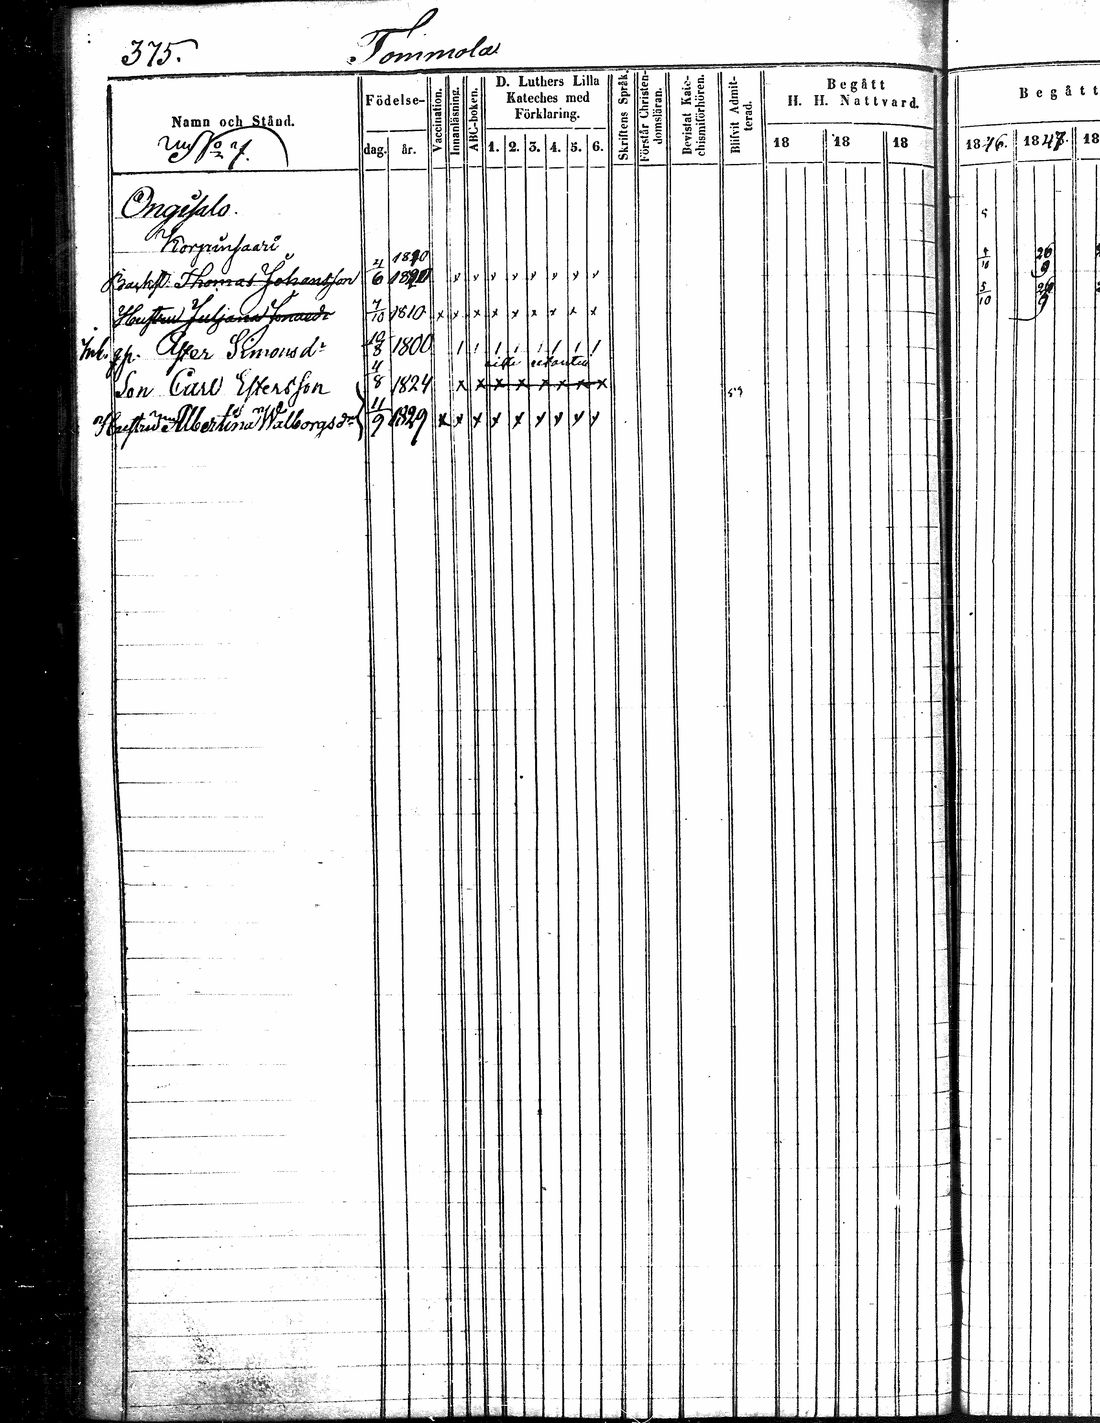 375. Tommola
Namn och Stånd.
No 7.
Födelse-
dag. år.
Vaccination.
Innanläsning.
ABC-boken.
D. Luthers Lilla
Kateches med
Förklaring.
1. 2. 3. 4. 5. 6.
Skriftens Språk.
Förstår Christen-
domsläran.
Bevistat Kate-
chismiförhören.
Blifvit Admit-
terad.
Begått
H. H. Nattvard.
18 18 18
Begått
1846. 1847. 18
Ongisalo.
Korpinsaari
Thomas Johansson 4/6 1820 1820
Hustru Juljana 7/10 1810 x x x x x x x x x
Inh. Ester Simonsdr 8 1800
Son Carl Estersson 4/8 1824 x x x x x x x x
Hustru Albertina Walborgsdr 11/9 1829 x x x x x x x x x
5/10
26
9